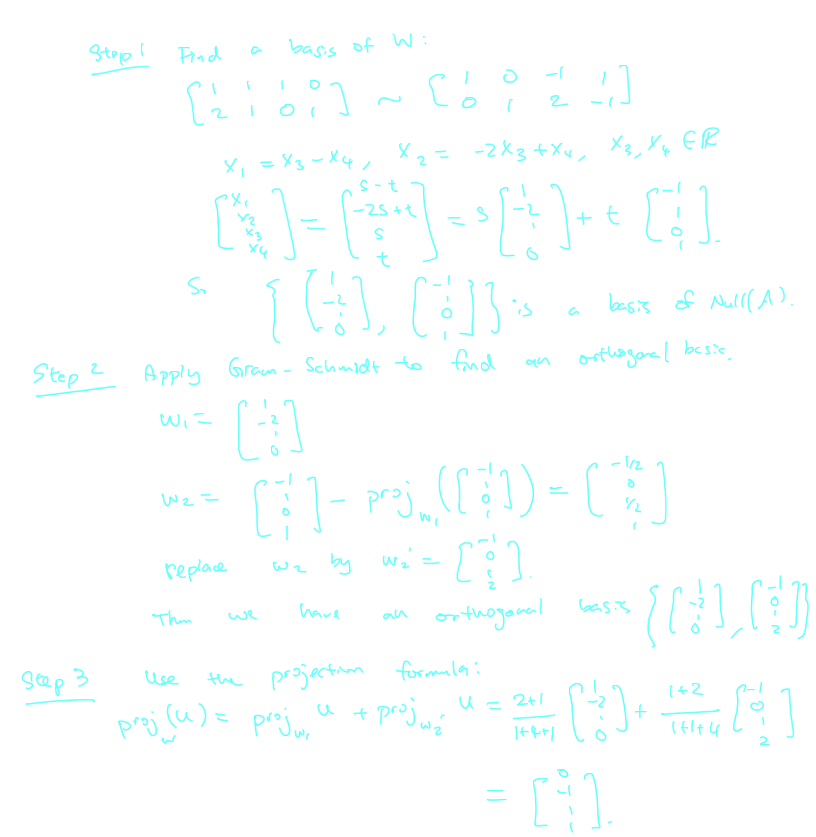 Step 1 Find a basis of W:
[1 1 1 0; 2 1 0 1] ~ [1 0 -1 1; 0 1 2 -1]
x₁ = x₃ - x₄, x₂ = -2x₃ + x₄, x₃, x₄ ∈ ℝ
[x₁; x₂; x₃; x₄] = [s - t; -2s + t; s; t] = s [1; -2; 1; 0] + t [-1; 1; 0; 1].
So { [1; -2; 1; 0], [-1; 1; 0; 1] } is a basis of Null(A).
Step 2 Apply Gram-Schmidt to find an orthogonal basis.
w₁ = [1; -2; 1; 0]
w₂ = [-1; 1; 0; 1] - proj_w₁ ([-1; 1; 0; 1]) = [-1/2; 0; 1/2; 1]
replace w₂ by w₂' = [-1; 0; 1; 2].
Then we have an orthogonal basis { [1; -2; 1; 0], [-1; 0; 1; 2] }
Step 3 Use the projection formula:
proj_W (u) = proj_w₁ u + proj_w₂' u = (2+1)/(1+4+1) [1; -2; 1; 0] + (1+2)/(1+1+4) [-1; 0; 1; 2]
= [0; -1; 1; 1].